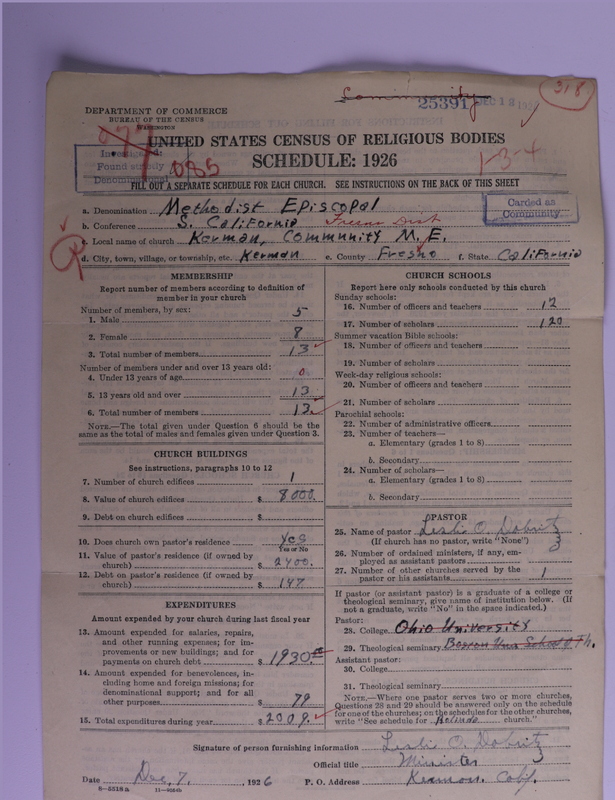 Community
25391 DEC 12 192
318
DEPARTMENT OF COMMERCE
BUREAU OF THE CENSUS
WASHINGTON
UNITED STATES CENSUS OF RELIGIOUS BODIES
SCHEDULE: 1926
077
Found strictly
Denominational
085
1-3-4
FILL OUT A SEPARATE SCHEDULE FOR EACH CHURCH. SEE INSTRUCTIONS ON THE BACK OF THIS SHEET
Carded as
Community.
a. Denomination Methodist Episcopal
b. Conference S. California Fresno Dist
c. Local name of church Kerman, Community M.E.
d. City, town, village, or township, etc. Kerman e. County Fresno f. State California
MEMBERSHIP
Report number of members according to definition of
member in your church
Number of members, by sex:
1. Male 5
2. Female 8
3. Total number of members 13
Number of members under and over 13 years old:
4. Under 13 years of age 0
5. 13 years old and over 13
6. Total number of members 13
NOTE.—The total given under Question 6 should be the
same as the total of males and females given under Question 3.
CHURCH BUILDINGS
See instructions, paragraphs 10 to 12
7. Number of church edifices 1
8. Value of church edifices $ 8000.
9. Debt on church edifices $
10. Does church own pastor's residence? Yes
Yes or No
11. Value of pastor's residence (if owned by
church) $ 2400.
12. Debt on pastor's residence (if owned by
church) $ 147
EXPENDITURES
Amount expended by your church during last fiscal year
13. Amount expended for salaries, repairs,
and other running expenses; for im-
provements or new buildings; and for
payments on church debt $ 1930
14. Amount expended for benevolences, in-
cluding home and foreign missions; for
denominational support; and for all
other purposes 79
15. Total expenditures during year $ 2009.
CHURCH SCHOOLS
Report here only schools conducted by this church
Sunday schools:
16. Number of officers and teachers 12
17. Number of scholars 120
Summer vacation Bible schools:
18. Number of officers and teachers
19. Number of scholars
Week-day religious schools:
20. Number of officers and teachers
21. Number of scholars
Parochial schools:
22. Number of administrative officers
23. Number of teachers—
a. Elementary (grades 1 to 8)
b. Secondary
24. Number of scholars—
a. Elementary (grades 1 to 8)
b. Secondary
PASTOR
25. Name of pastor Leslie O. Dobritz
(If church has no pastor, write "None")
26. Number of ordained ministers, if any, em-
ployed as assistant pastors
27. Number of other churches served by the
pastor or his assistants 1
If pastor (or assistant pastor) is a graduate of a college or
theological seminary, give name of institution below. (If
not a graduate, write "No" in the space indicated.)
Pastor:
28. College Ohio University
29. Theological seminary Boston Univ School of Th.
Assistant pastor:
30. College
31. Theological seminary
NOTE.—Where one pastor serves two or more churches,
Questions 28 and 29 should be answered only on the schedule
for one of the churches; on the schedules for the other churches,
write "See schedule for church."
Signature of person furnishing information Leslie O. Dobritz
Official title Minister
Date Dec. 7, 1926 P. O. Address Kerman. Calif.